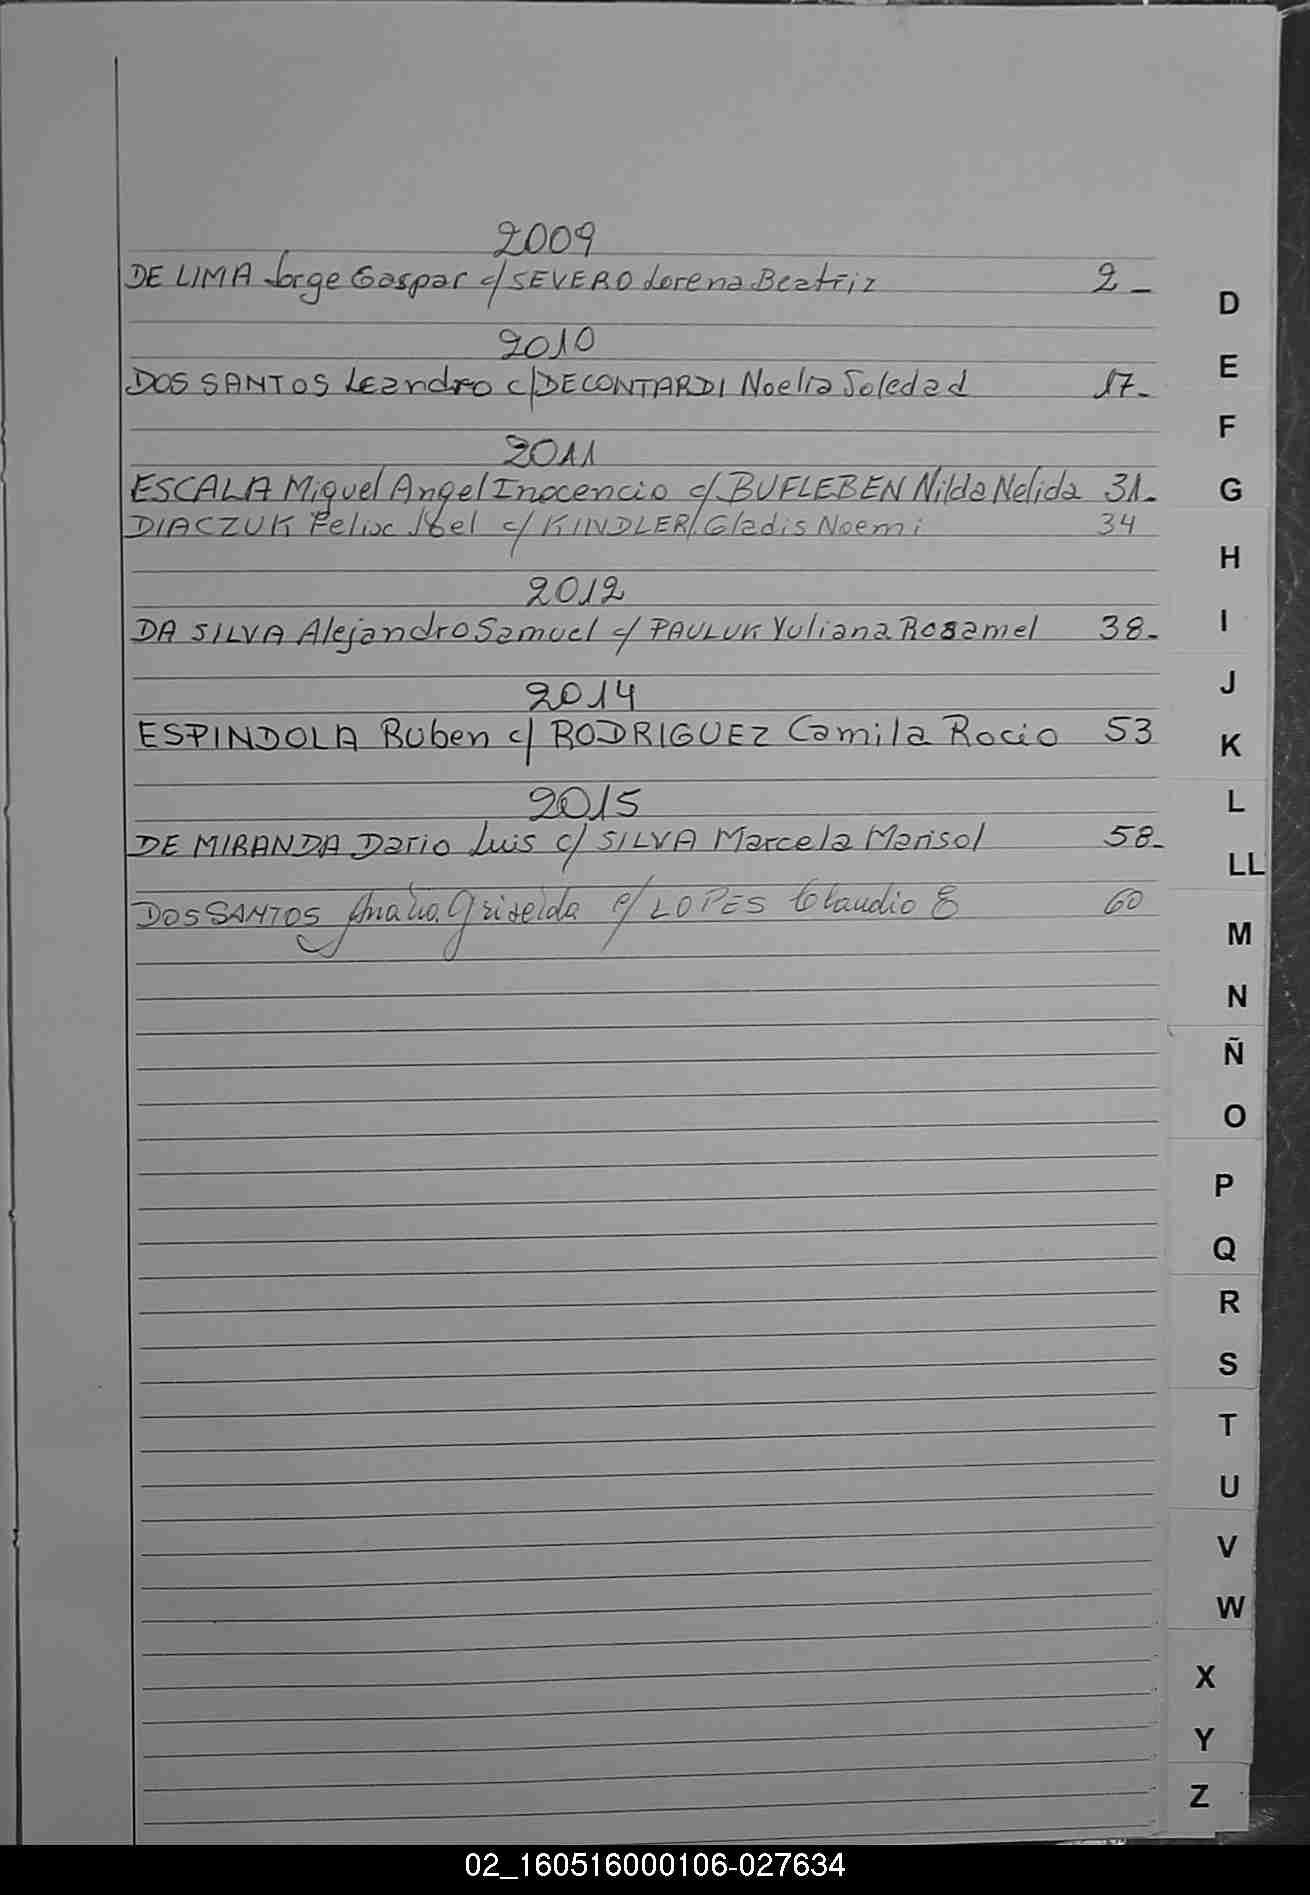 2009
DE LIMA Jorge Gaspar c/ SEVERO Lorena Beatriz 2 -
2010
DOS SANTOS Leandro c/ DECONTARDI Noelia Soledad 17-
2011
ESCALA Miguel Angel Inocencio c/ BUFLEBEN Nilda Nelida 31-
DIACZUK Felix Joel c/ KINDLER Gladis Noemi 34
2012
DA SILVA Alejandro Samuel c/ PAULUK Yuliana Rosamel 38-
2014
ESPINDOLA Ruben c/ RODRIGUEZ Camila Rocio 53
2015
DE MIRANDA Dario Luis c/ SILVA Marcela Marisol 58-
DOS SANTOS Analia Griselda c/ LOPES Claudio E 60
D
E
F
G
H
I
J
K
L
LL
M
N
Ñ
O
P
Q
R
S
T
U
V
W
X
Y
Z
02_160516000106-027634